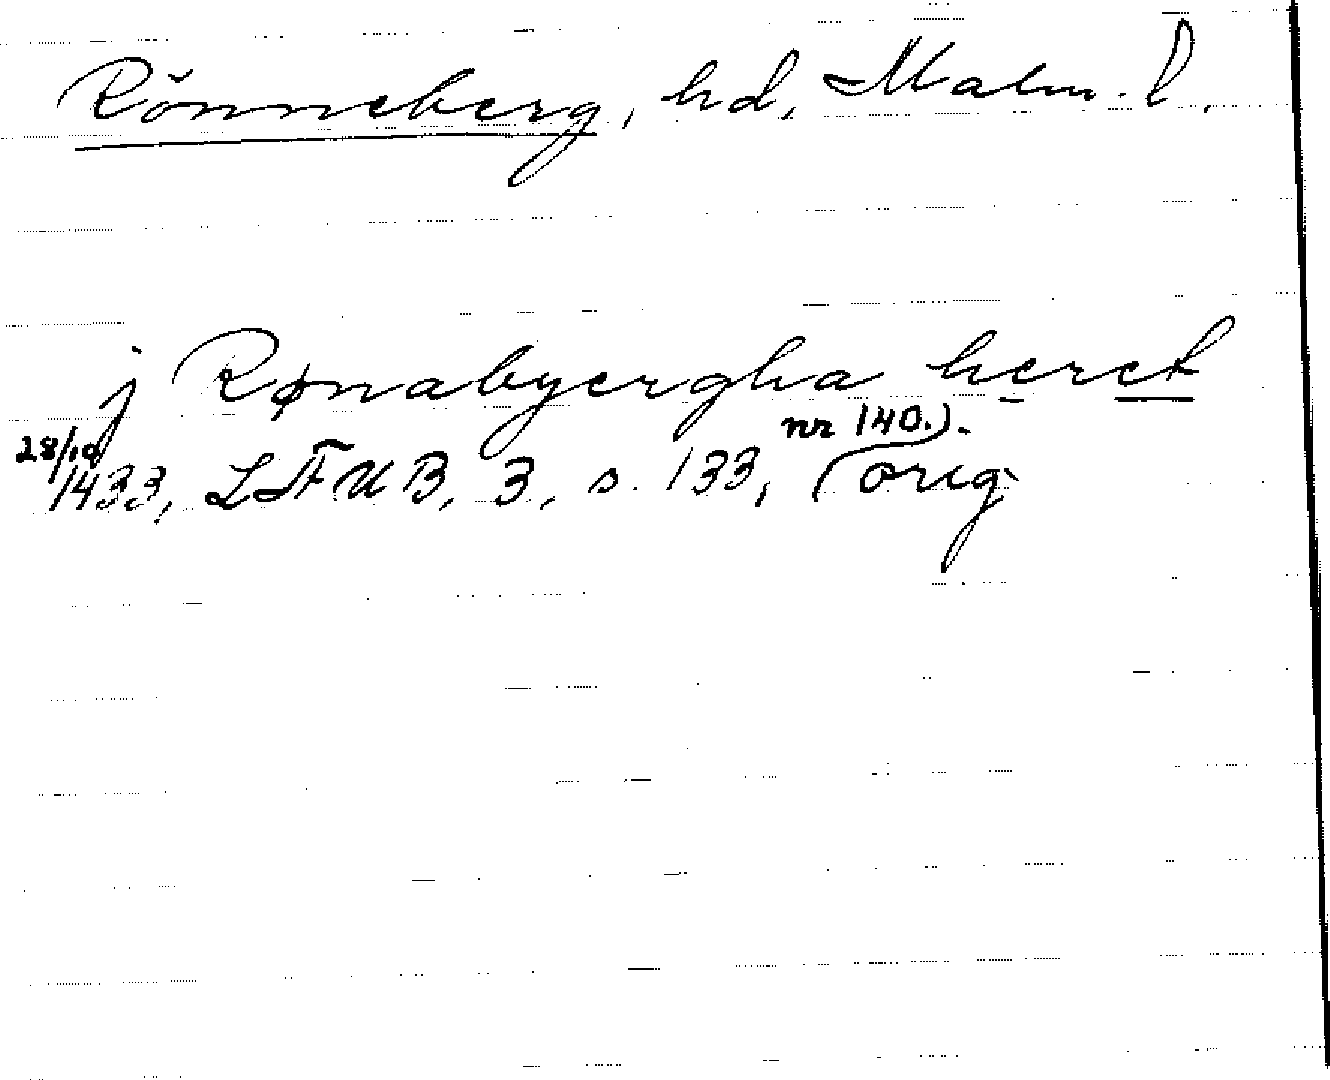 Rönneberg, hd, Malm. l.
j Rønabyergha heret
28/10 1433, LÅUB, 3, s. 133, (orig
nr 140.).